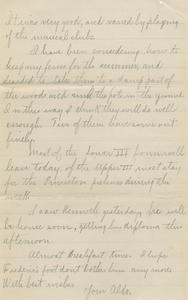 It was very good, and varied by playing
of the musical clubs.
I have been considering how to
keep my ferns for the summer and
decided to take them to a damp part of
the woods and sink the pots in the ground
In this way I think they will do well
enough. Two of them have come out
finely.
Most of the Lower III form will
leave today if the Upper III must stay
for the Princeton prelims during the
week.
I saw Kenneth yesterday he will
be home soon, getting his diploma this
afternoon.
Almost breakfast time. I hope
Frederic's foot don't bother him any more.
With best wishes
Your Aldo.